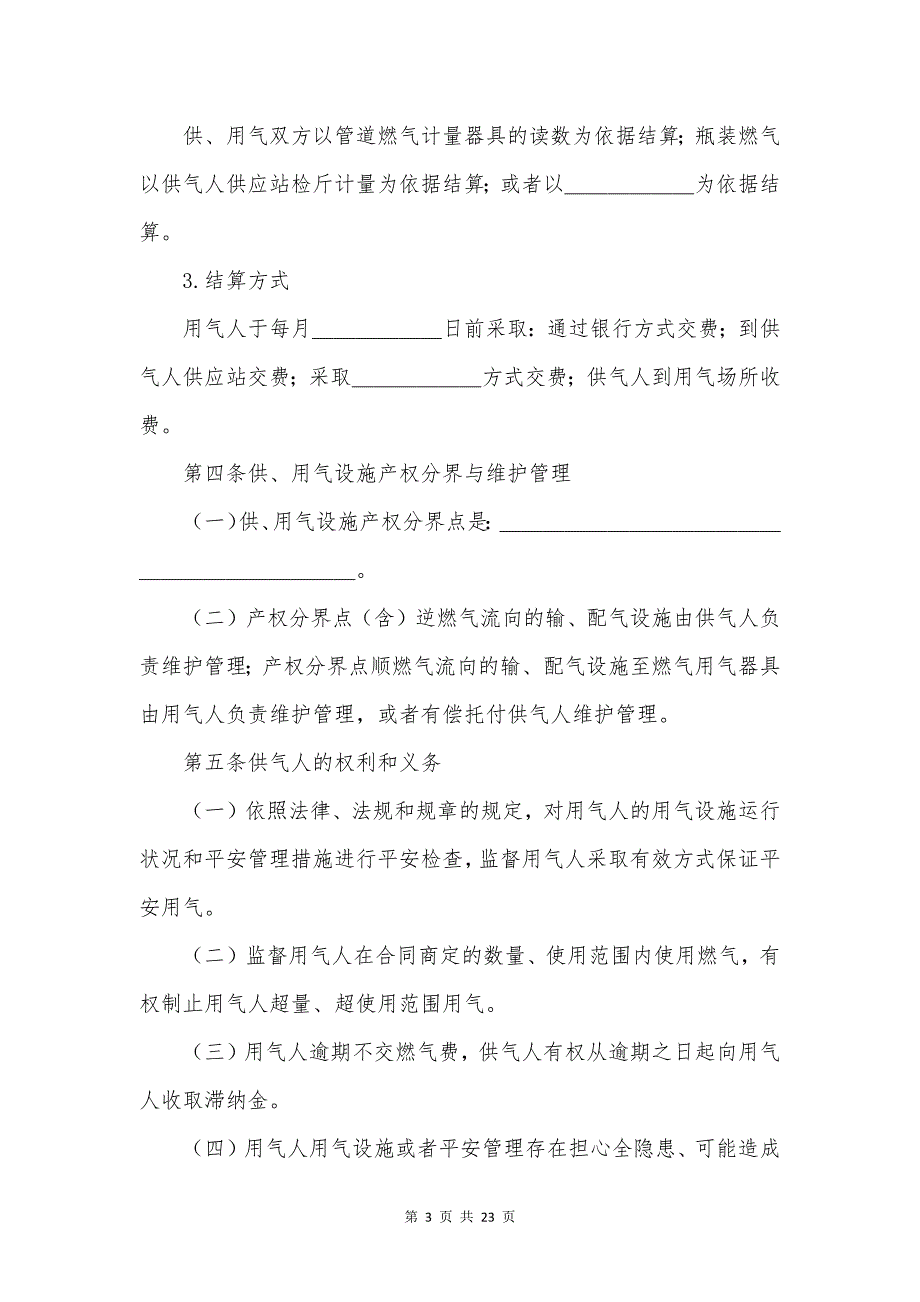 供、用气双方以管道燃气计量器具的读数为依据结算；瓶装燃气
以供气人供应站检斤计量为依据结算；或者以____________为依据结
算。
3.结算方式
用气人于每月____________日前采取：通过银行方式交费；到供
气人供应站交费；采取____________方式交费；供气人到用气场所收
费。
第四条供、用气设施产权分界与维护管理
（一）供、用气设施产权分界点是：__________________________
____________________。
（二）产权分界点（含）逆燃气流向的输、配气设施由供气人负
责维护管理；产权分界点顺燃气流向的输、配气设施至燃气用气器具
由用气人负责维护管理，或者有偿托付供气人维护管理。
第五条供气人的权利和义务
（一）依照法律、法规和规章的规定，对用气人的用气设施运行
状况和平安管理措施进行平安检查，监督用气人采取有效方式保证平
安用气。
（二）监督用气人在合同商定的数量、使用范围内使用燃气，有
权制止用气人超量、超使用范围用气。
（三）用气人逾期不交燃气费，供气人有权从逾期之日起向用气
人收取滞纳金。
（四）用气人用气设施或者平安管理存在担心全隐患、可能造成
第 3 页 共 23 页